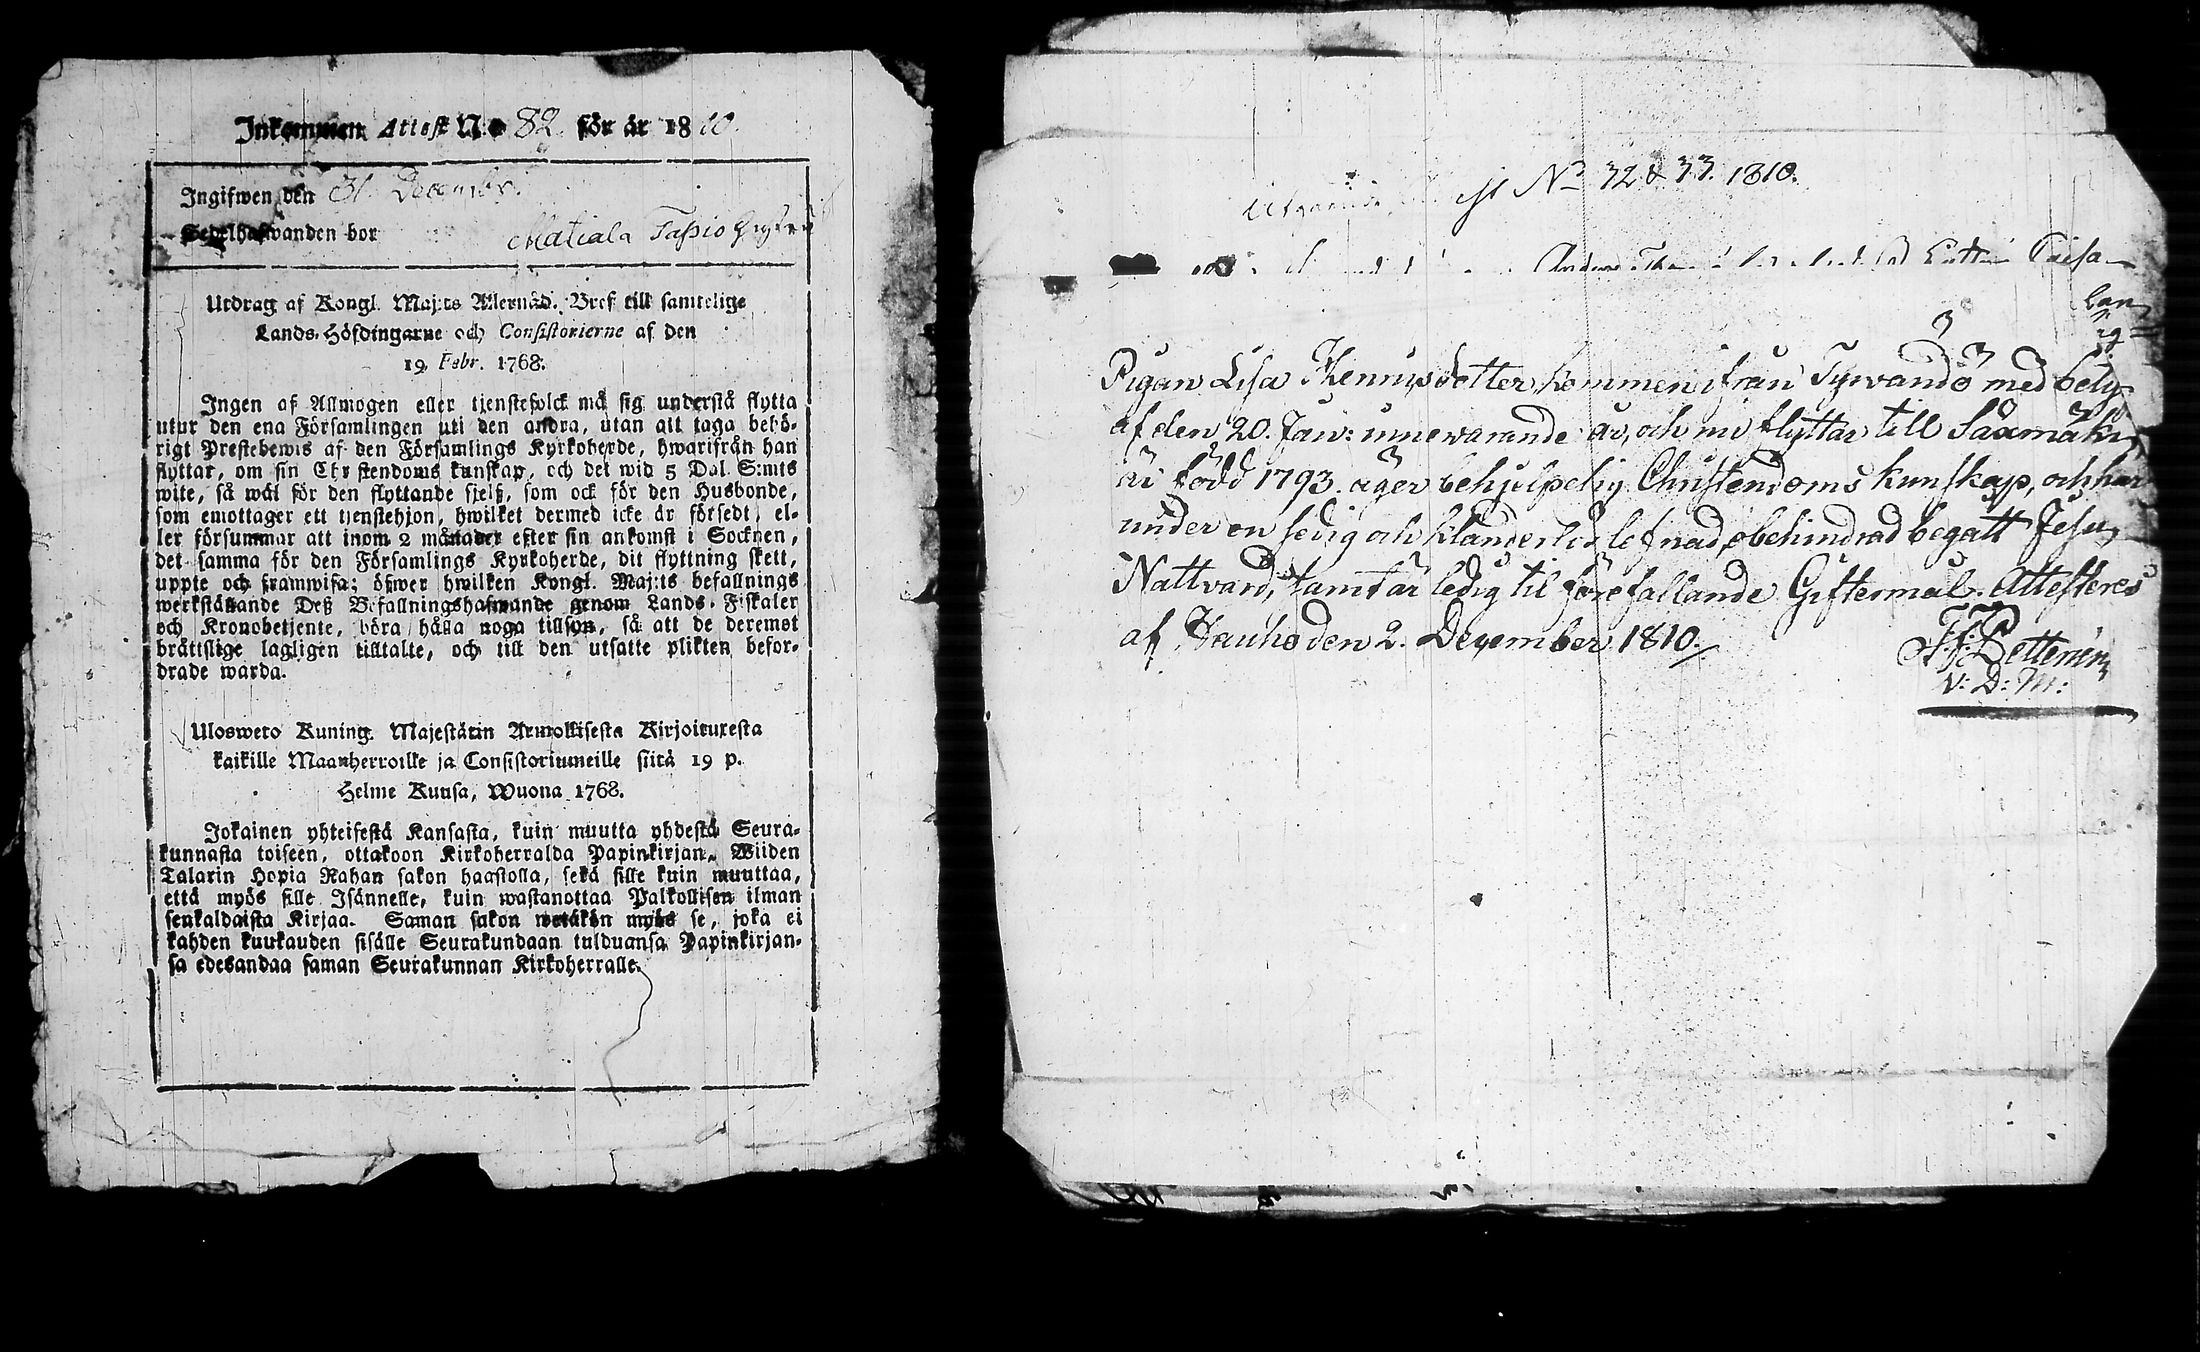 Inkommen Attest N:o 82 för år 1810.
Ingifwen den 31. Decembr.
Sedelhafwanden bor Matiala Tapio
Utdrag af Kongl. Maj:ts Allernåd. Bref till samtelige
Lands-Höfdingarne och Consistorierne af den
19 Febr. 1768.
Ingen af Allmogen eller tjenstefolck må sig understå flytta
utur den ena Församlingen uti den andra, utan att taga behö-
rigt Prestebewis af den Församlings Kyrkoherde, hwarifrån han
flyttar, om sin Christendoms kunskap, och det wid 5 Dal. S:mts
wite, så wäl för den flyttande sjelf, som ock för den Husbonde,
som emottager ett tjenstehjon, hwilket dermed icke är försedt, el-
ler försummar att inom 2 månader efter sin ankomst i Socknen,
det samma för den Församlings Kyrkoherde, dit flyttning skett,
uppte och framwisa; öfwer hwilken Kongl. Maj:ts befallnings
werkställande Deß Befallningshafwande genom Lands-Fiskaler
och Kronobetjente, böra hålla noga tillsyn, så att de deremot
bråttslige lagligen tilltalte, och till den utsatte plikten befor-
drade warda.
Ulosweto Kuning. Majestätin Armollisesta Kirjoituxesta
kaikille Maanherroille ja Consistoriumeille siitä 19 p.
Helme Kuusa, Wuona 1768.
Jokainen yhteisestä Kansasta, kuin muutta yhdestä Seura-
kunnasta toiseen, ottakoon Kirkoherralda Papinkirjan, Wiiden
Talarin Hopia Rahan sakon haastolla, sekä sille kuin muuttaa,
että myös sille Isännelle, kuin wastanottaa Palkollisen ilman
senkaldaista Kirjaa. Saman sakon wetäkön myös se, joka ei
kahden kuukauden sisälle Seurakundaan tulduansa Papinkirjan-
sa edesandaa saman Seurakunnan Kirkoherralle.
N:o 32 & 33. 1810.
Pigan Lisa Thennisdotter, kommen ifrån Tyrwändö med bety-
af den 20. Jan: innewarande år, och nu flyttar till Sääxmäki,
är född 1793. äger behjelpelig Christendoms kunskap, och har
under en sedig och klanderlös lefnad, obehindrad begått Jesu
Nattvard, samt är ledig til förefallande Giftermål. Attesteres
af Hauho den 2. December 1810.
V: D: M: